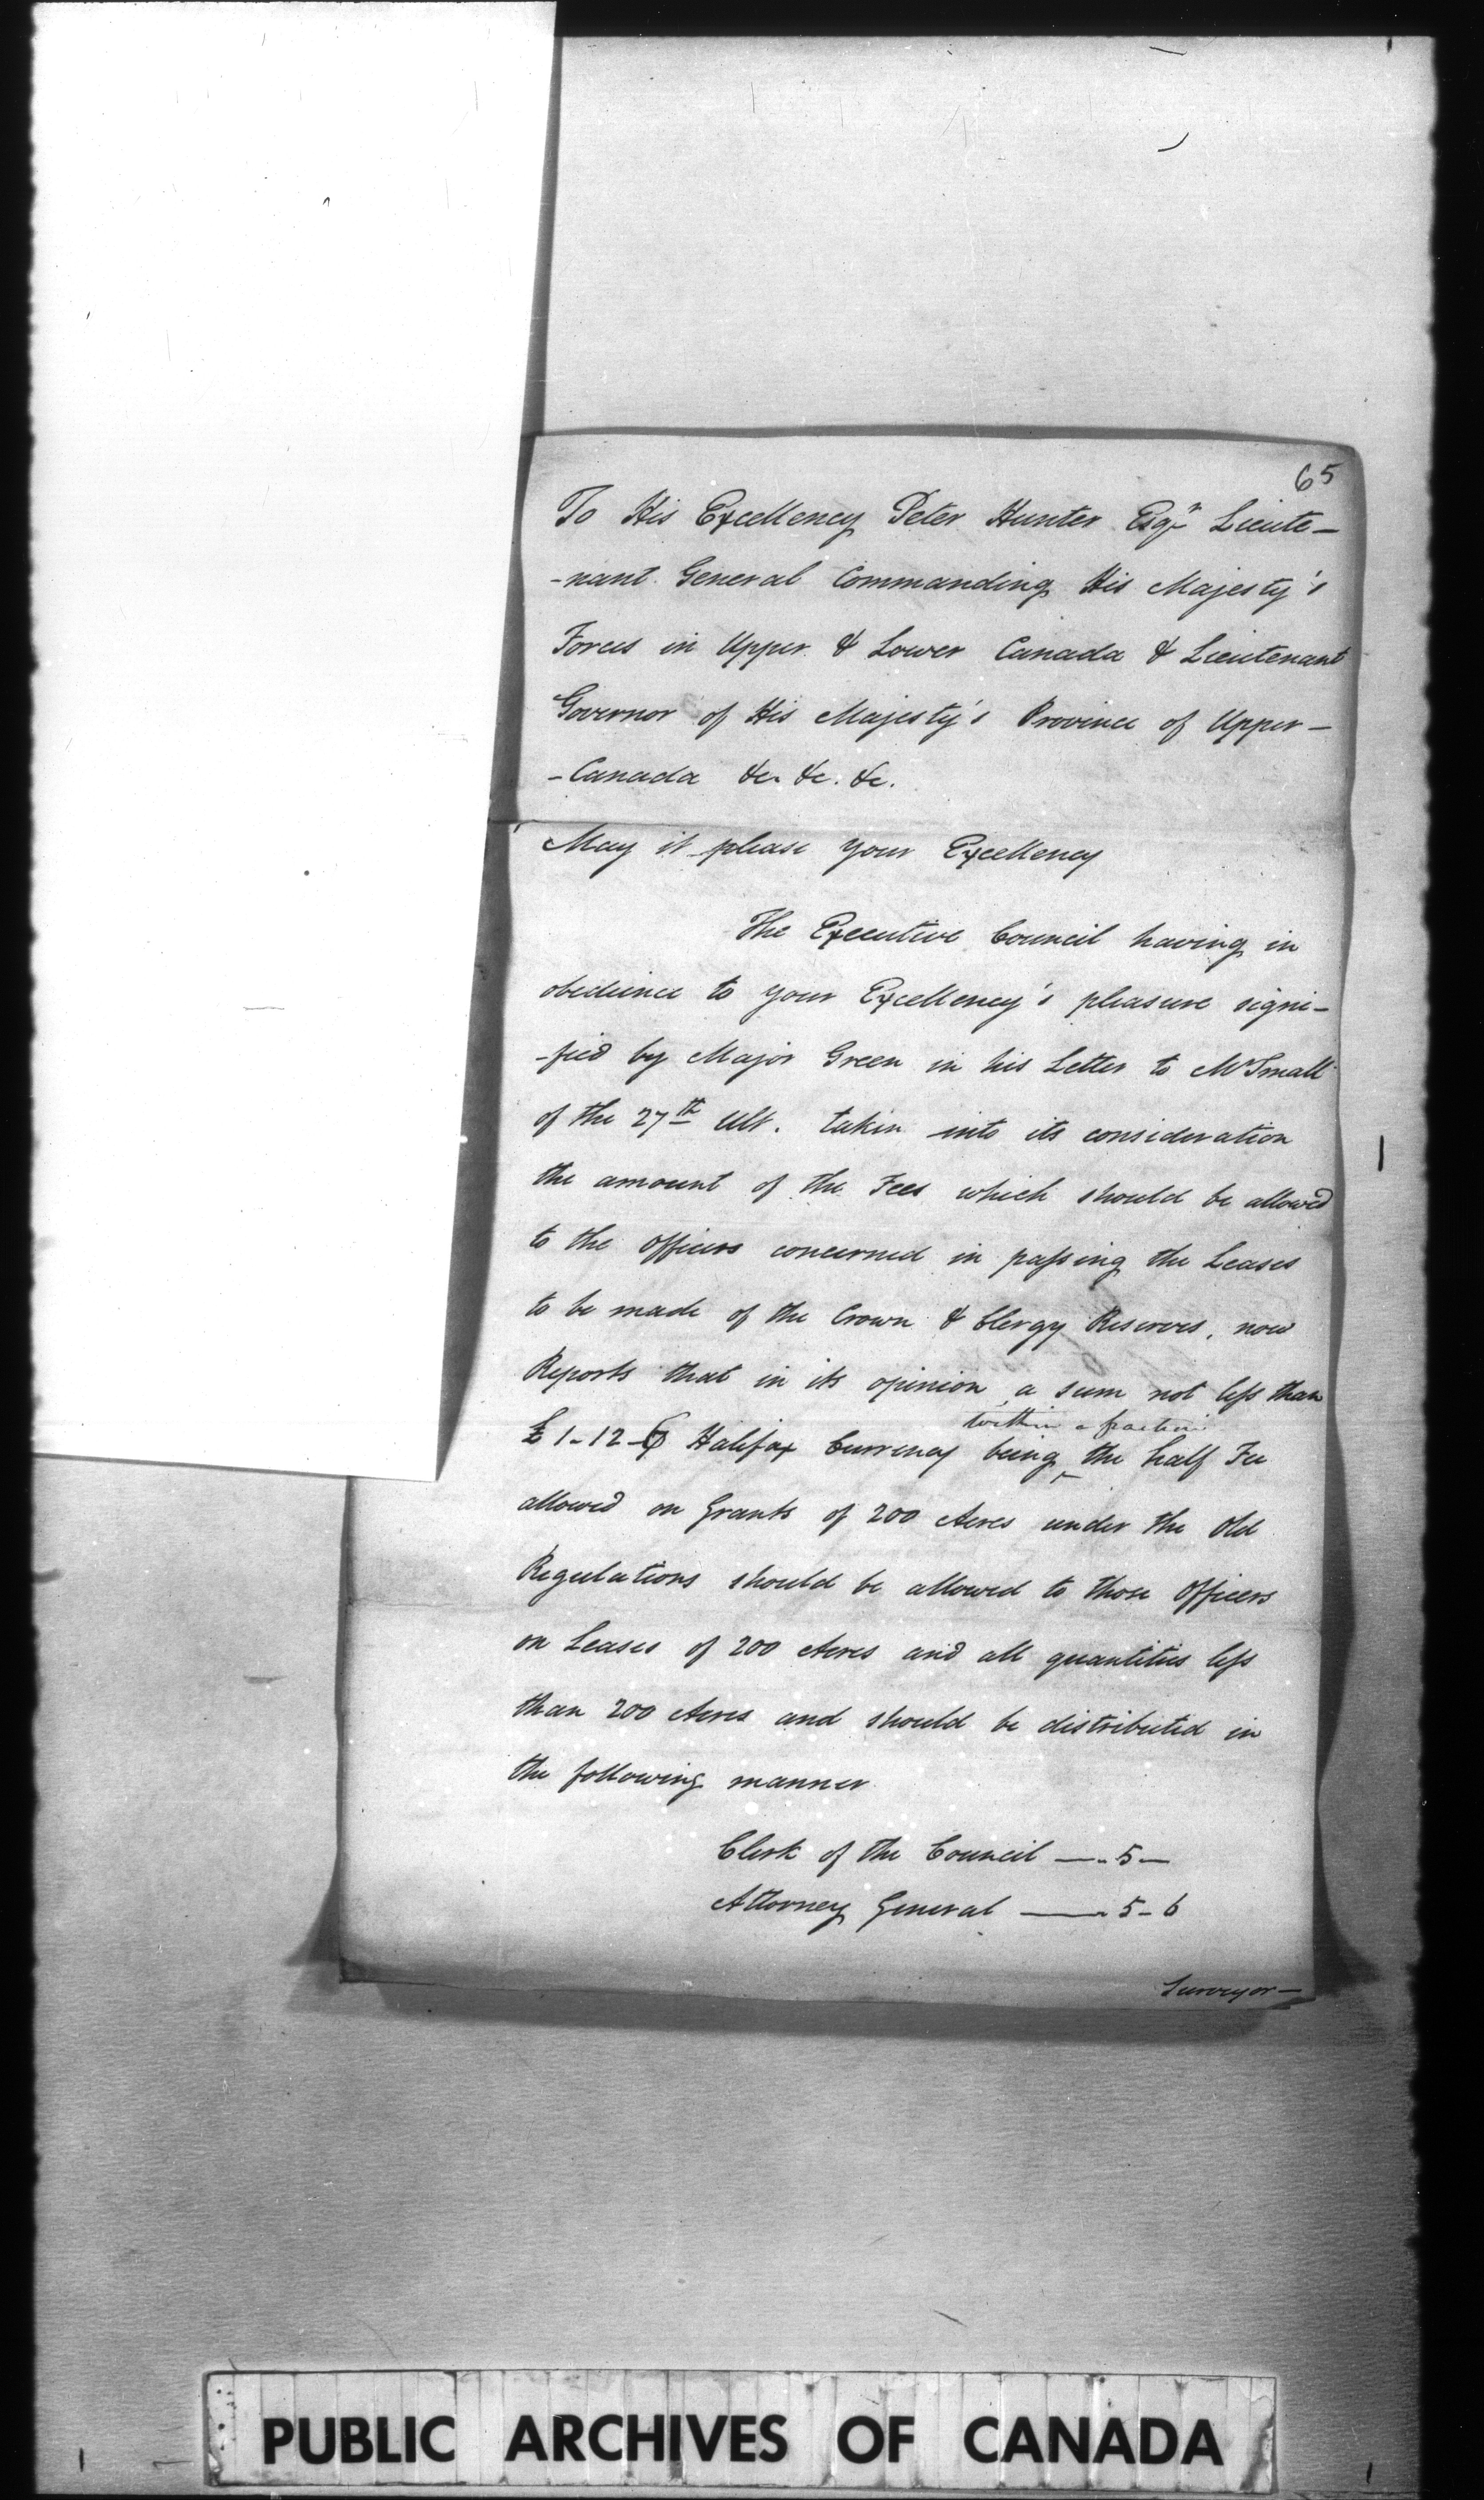 65
To His Excellency Peter Hunter Esqr Lieute-
-nant General Commanding His Majesty's
Forces in Upper & Lower Canada & Lieutenant
Governor of His Majesty's Province of Upper-
-Canada &c. &c. &c.
May it please your Excellency
The Executive Council having in
obedience to your Excellency's pleasure signi-
-fied by Major Green in his Letter to Mr Small
of the 27th Ult. taken into its consideration
the amount of the Fees which should be allowed
to the officers concerned in passing the Leases
to be made of the Crown & Clergy Reserves, now
Reports that in its opinion a sum not less than
within a fraction
£1-12-6 Halifax Currency being the half Fee
allowed on Grants of 200 Acres under the Old
Regulations should be allowed to those Officers
on Leases of 200 Acres and all quantities less
than 200 Acres and should be distributed in
the following manner
Clerk of the Council —.. 5 —
Attorney General —— 5 - 6
Surveyor —
PUBLIC ARCHIVES OF CANADA